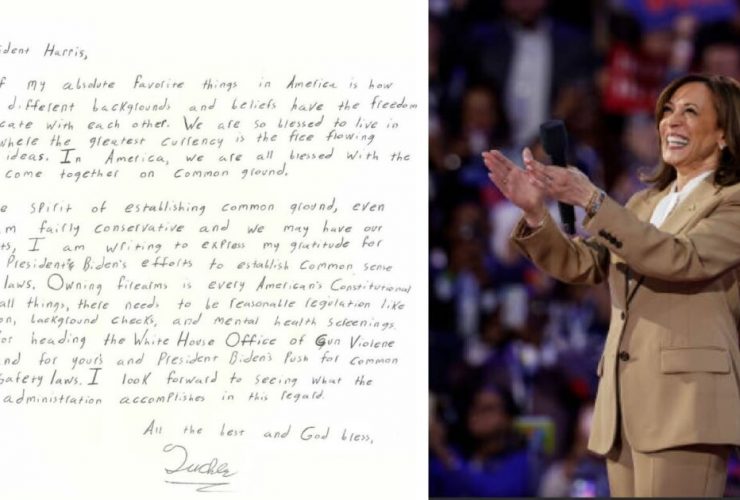 ident Harris,
f my absolute favorite things in America is how
different backgrounds and beliefs have the freedom
cate with each other. We are so blessed to live in
where the greatest currency is the free flowing
ideas. In America, we are all blessed with the
come together on common ground.
e spirit of establishing common ground, even
m fairly conservative and we may have our
ts, I am writing to express my gratitude for
President's Biden's efforts to establish common sense
laws. Owning firearms is every American's Constitutional
all things, there needs to be reasonable regulation like
on, background checks, and mental health screenings.
for heading the White House Office of Gun Violene
nd for your's and President Biden's push for common
safety laws. I look forward to seeing what the
administration accomplishes in this regard.
All the best and God bless,